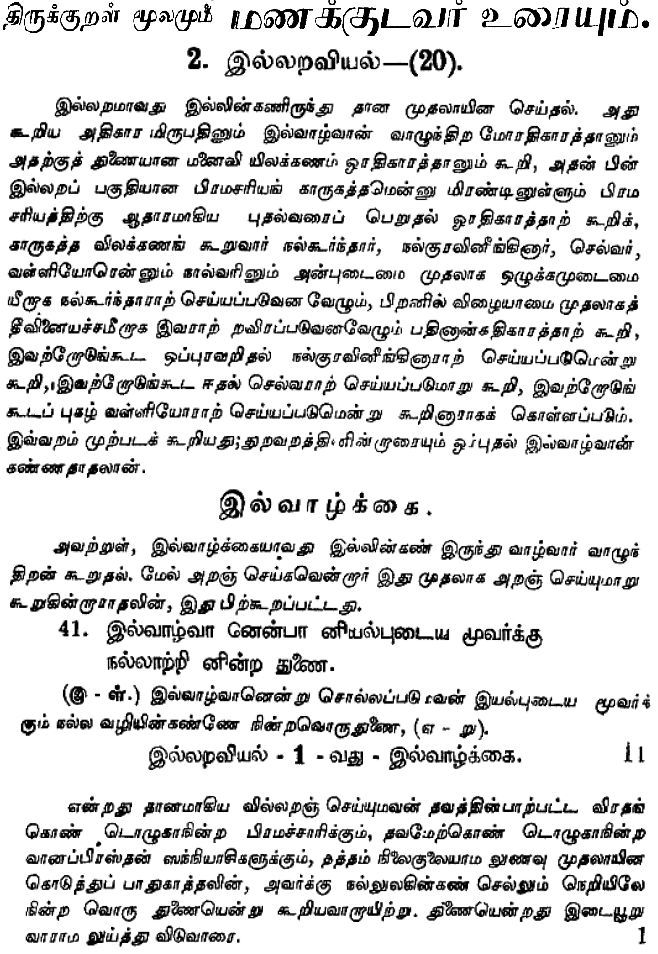 திருக்குறள் மூலமும் மணக்குடவர் உரையும்.
2. இல்லறவியல்—(20).
இல்லறமாவது இல்லின்கணிருந்து தான முதலாயின செய்தல். அது
கூறிய அதிகார மிருபதினும் இல்வாழ்வான் வாழுந்திற மோரதிகாரத்தானும்
அதற்குத் துணையான மனைவி யிலக்கணம் ஓரதிகாரத்தானும் கூறி, அதன் பின்
இல்லறப் பகுதியான பிரமசரியங் காருகத்தமென்னு மிரண்டினுள்ளும் பிரம
சரியத்திற்கு ஆதாரமாகிய புதல்வரைப் பெறுதல் ஓரதிகாரத்தாற் கூறிக்,
காருகத்த விலக்கணங் கூறுவார் நல்கூர்ந்தார், நல்குரவினீங்கினார், செல்வர்,
வள்ளியோரென்னும் நால்வரினும் அன்புடைமை முதலாக ஒழுக்கமுடைமை
யீறாக நல்கூர்ந்தாராற் செய்யப்படுவன வேழும், பிறனில் விழையாமை முதலாகத்
தீவினையச்சமீறாக இவராற் றவிரப்படுவனவேழும் பதினான்கதிகாரத்தாற் கூறி,
இவற்றோடுங்கூட ஒப்புரவறிதல் நல்குரவினீங்கினாராற் செய்யப்படுமென்று
கூறி, இவற்றோடுங்கூட ஈதல் செல்வராற் செய்யப்படுமாறு கூறி, இவற்றோடுங்
கூடப் புகழ் வள்ளியோராற் செய்யப்படுமென்று கூறினாராகக் கொள்ளப்படும்.
இவ்வறம் முற்படக் கூறியது; துறவறத்தினின்றாரையும் ஓம்புதல் இல்வாழ்வான்
கண்ணதாதலான்.
இல்வாழ்க்கை.
அவற்றுள், இல்வாழ்க்கையாவது இல்லின்கண் இருந்து வாழ்வார் வாழுந்
திறன் கூறுதல். மேல் அறஞ் செய்கவென்றார் இது முதலாக அறஞ் செய்யுமாறு
கூறுகின்றாராதலின், இது பிற்கூறப்பட்டது.
41. இல்வாழ்வா னென்பா னியல்புடைய மூவர்க்கு
நல்லாற்றி னின்ற துணை.
(இ - ள்.) இல்வாழ்வானென்று சொல்லப்படுபவன் இயல்புடைய மூவர்க்
கும் நல்ல வழியின்கண்ணே நின்றவொருதுணை, (எ - று).
இல்லறவியல் - 1 - வது - இல்வாழ்க்கை. 11
என்றது தானமாகிய வில்லறஞ் செய்யுமவன் தவத்தின்பாற்பட்ட விரதங்
கொண் டொழுகாநின்ற பிரமச்சாரிக்கும், தவமேற்கொண் டொழுகாநின்ற
வானப்பிரஸ்தன் ஸந்நியாசிகளுக்கும், தத்தம் நிலைகுலையாம லுணவு முதலாயின
கொடுத்துப் பாதுகாத்தலின், அவர்க்கு நல்லுலகின்கண் செல்லும் நெறியிலே
நின்ற வொரு துணையென்று கூறியவாறாயிற்று. துணையென்றது இடையூறு
வாராம லுய்த்து விடுவாரை. 1